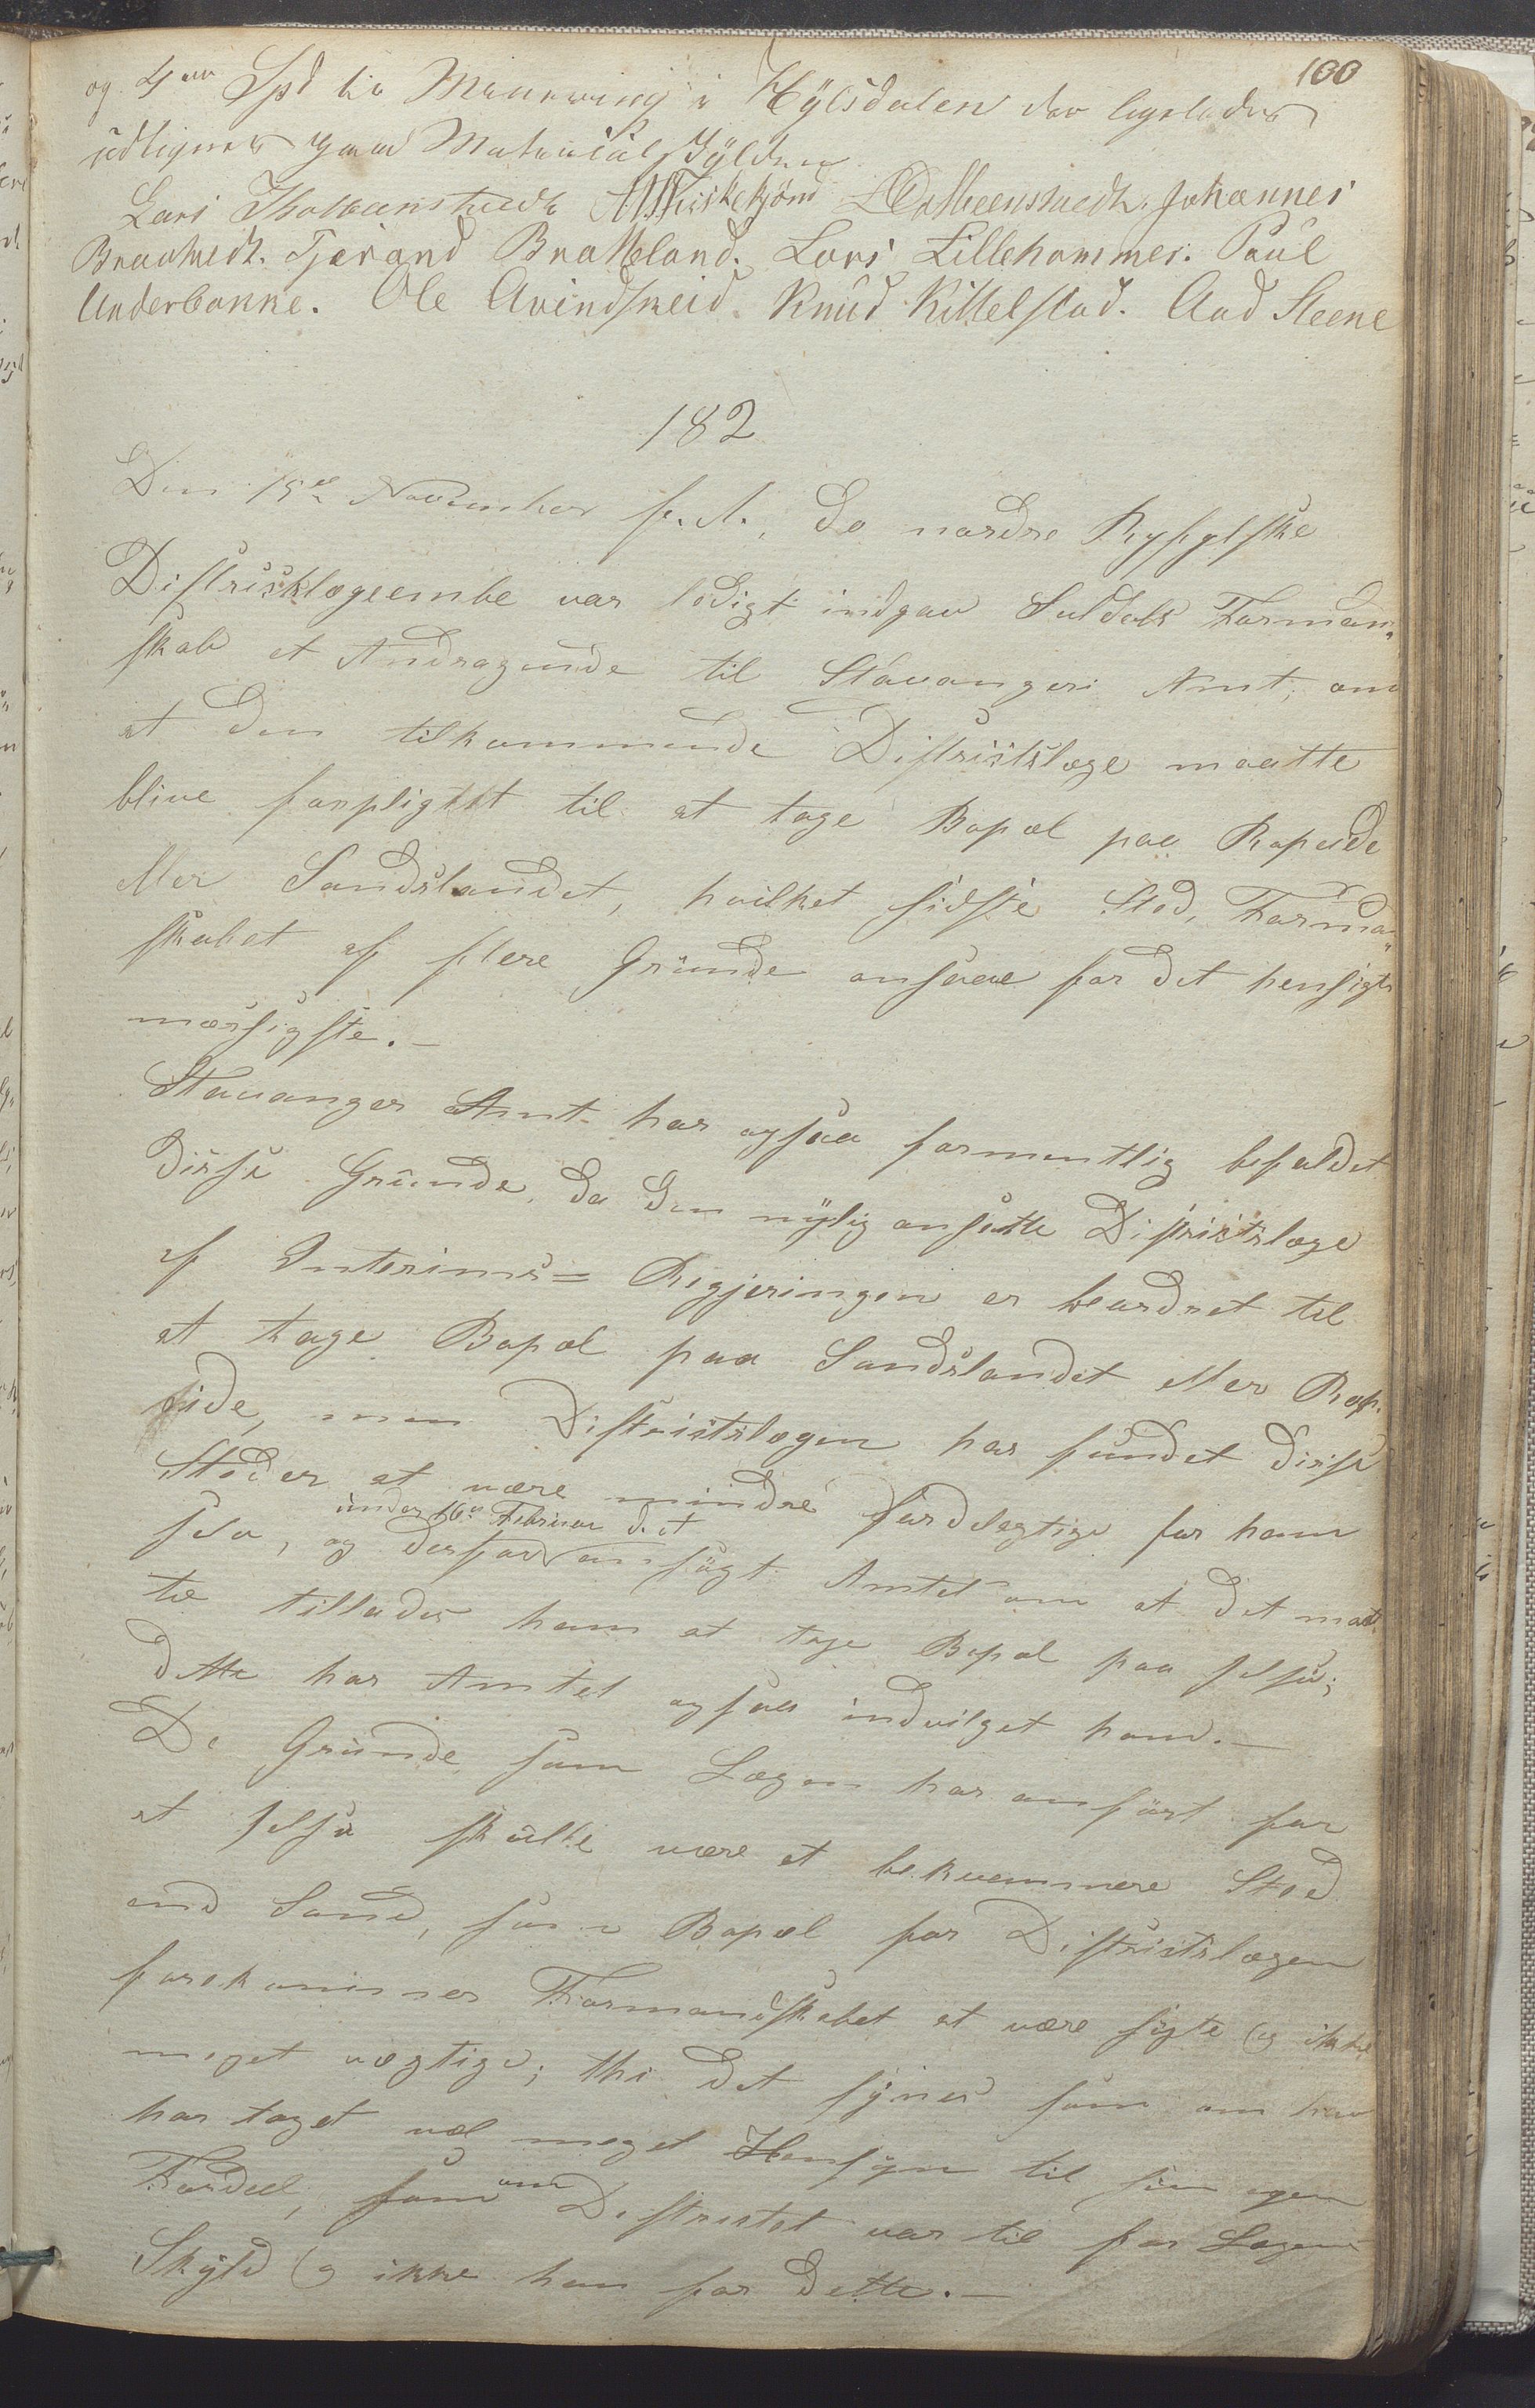 100
og 4re Spd til Minervasy i Hylsdalen der ligeledes
udlignes paa Matriculskylden
Lars Tholvenstvedt A. M. Fiskekjøn L Ostbeenstvedt. Johannes
Braatvedt. Tjerand Bratteland. Lars Lillehammer. Paul
Underbakke. Ole Qvindsheid. Knud Kittelstad. Aad Steene
182
Den 15de November f. A., da nordre Ryfylkske
Districktlægeembe var ledigt indgav Suldals Forman,,
skab et Andragende til Stavanger Amt, om
at den tilkommende Districtslæge maatte
blive forpligtet til at tage Bopæl paa Ropeide
eller Sandslandet, hvilket sidste Sted, Forman,,
skabet af flere Grunde ansaae for det hensigts
mæssigste. —
Stavanger Amt har ogsaa formentlig bifaldet
disse Grunde, da den nylig ansatte Districtslæge
af Interims= Regjeringen er beordret til
at tage Bopæl paa Sandslandet eller Rop-
eide, men Districtslægen har fundet disse
Steder at være mindre fordelagtige for ham
under 16de Februar d. A
selv, og derfor ansøgt Amtet om at det maat
te tillades ham at tage Bopæl paa Jelsø;
dette har Amtet ogsaa indvilget ham. —
De Grunde som Lægen har anført for
at Jelsø skulle være et bekvemmere Sted
end Sand, som Bopæl for Districtslægen
forekommer Formandskabet at være søgte og ikke
meget vægtige; thi det synes som om han
har taget vel meget Hensyn til sin egen
Fordeel, som om Districtet var til for Lægens
Skyld og ikke han for dette. —